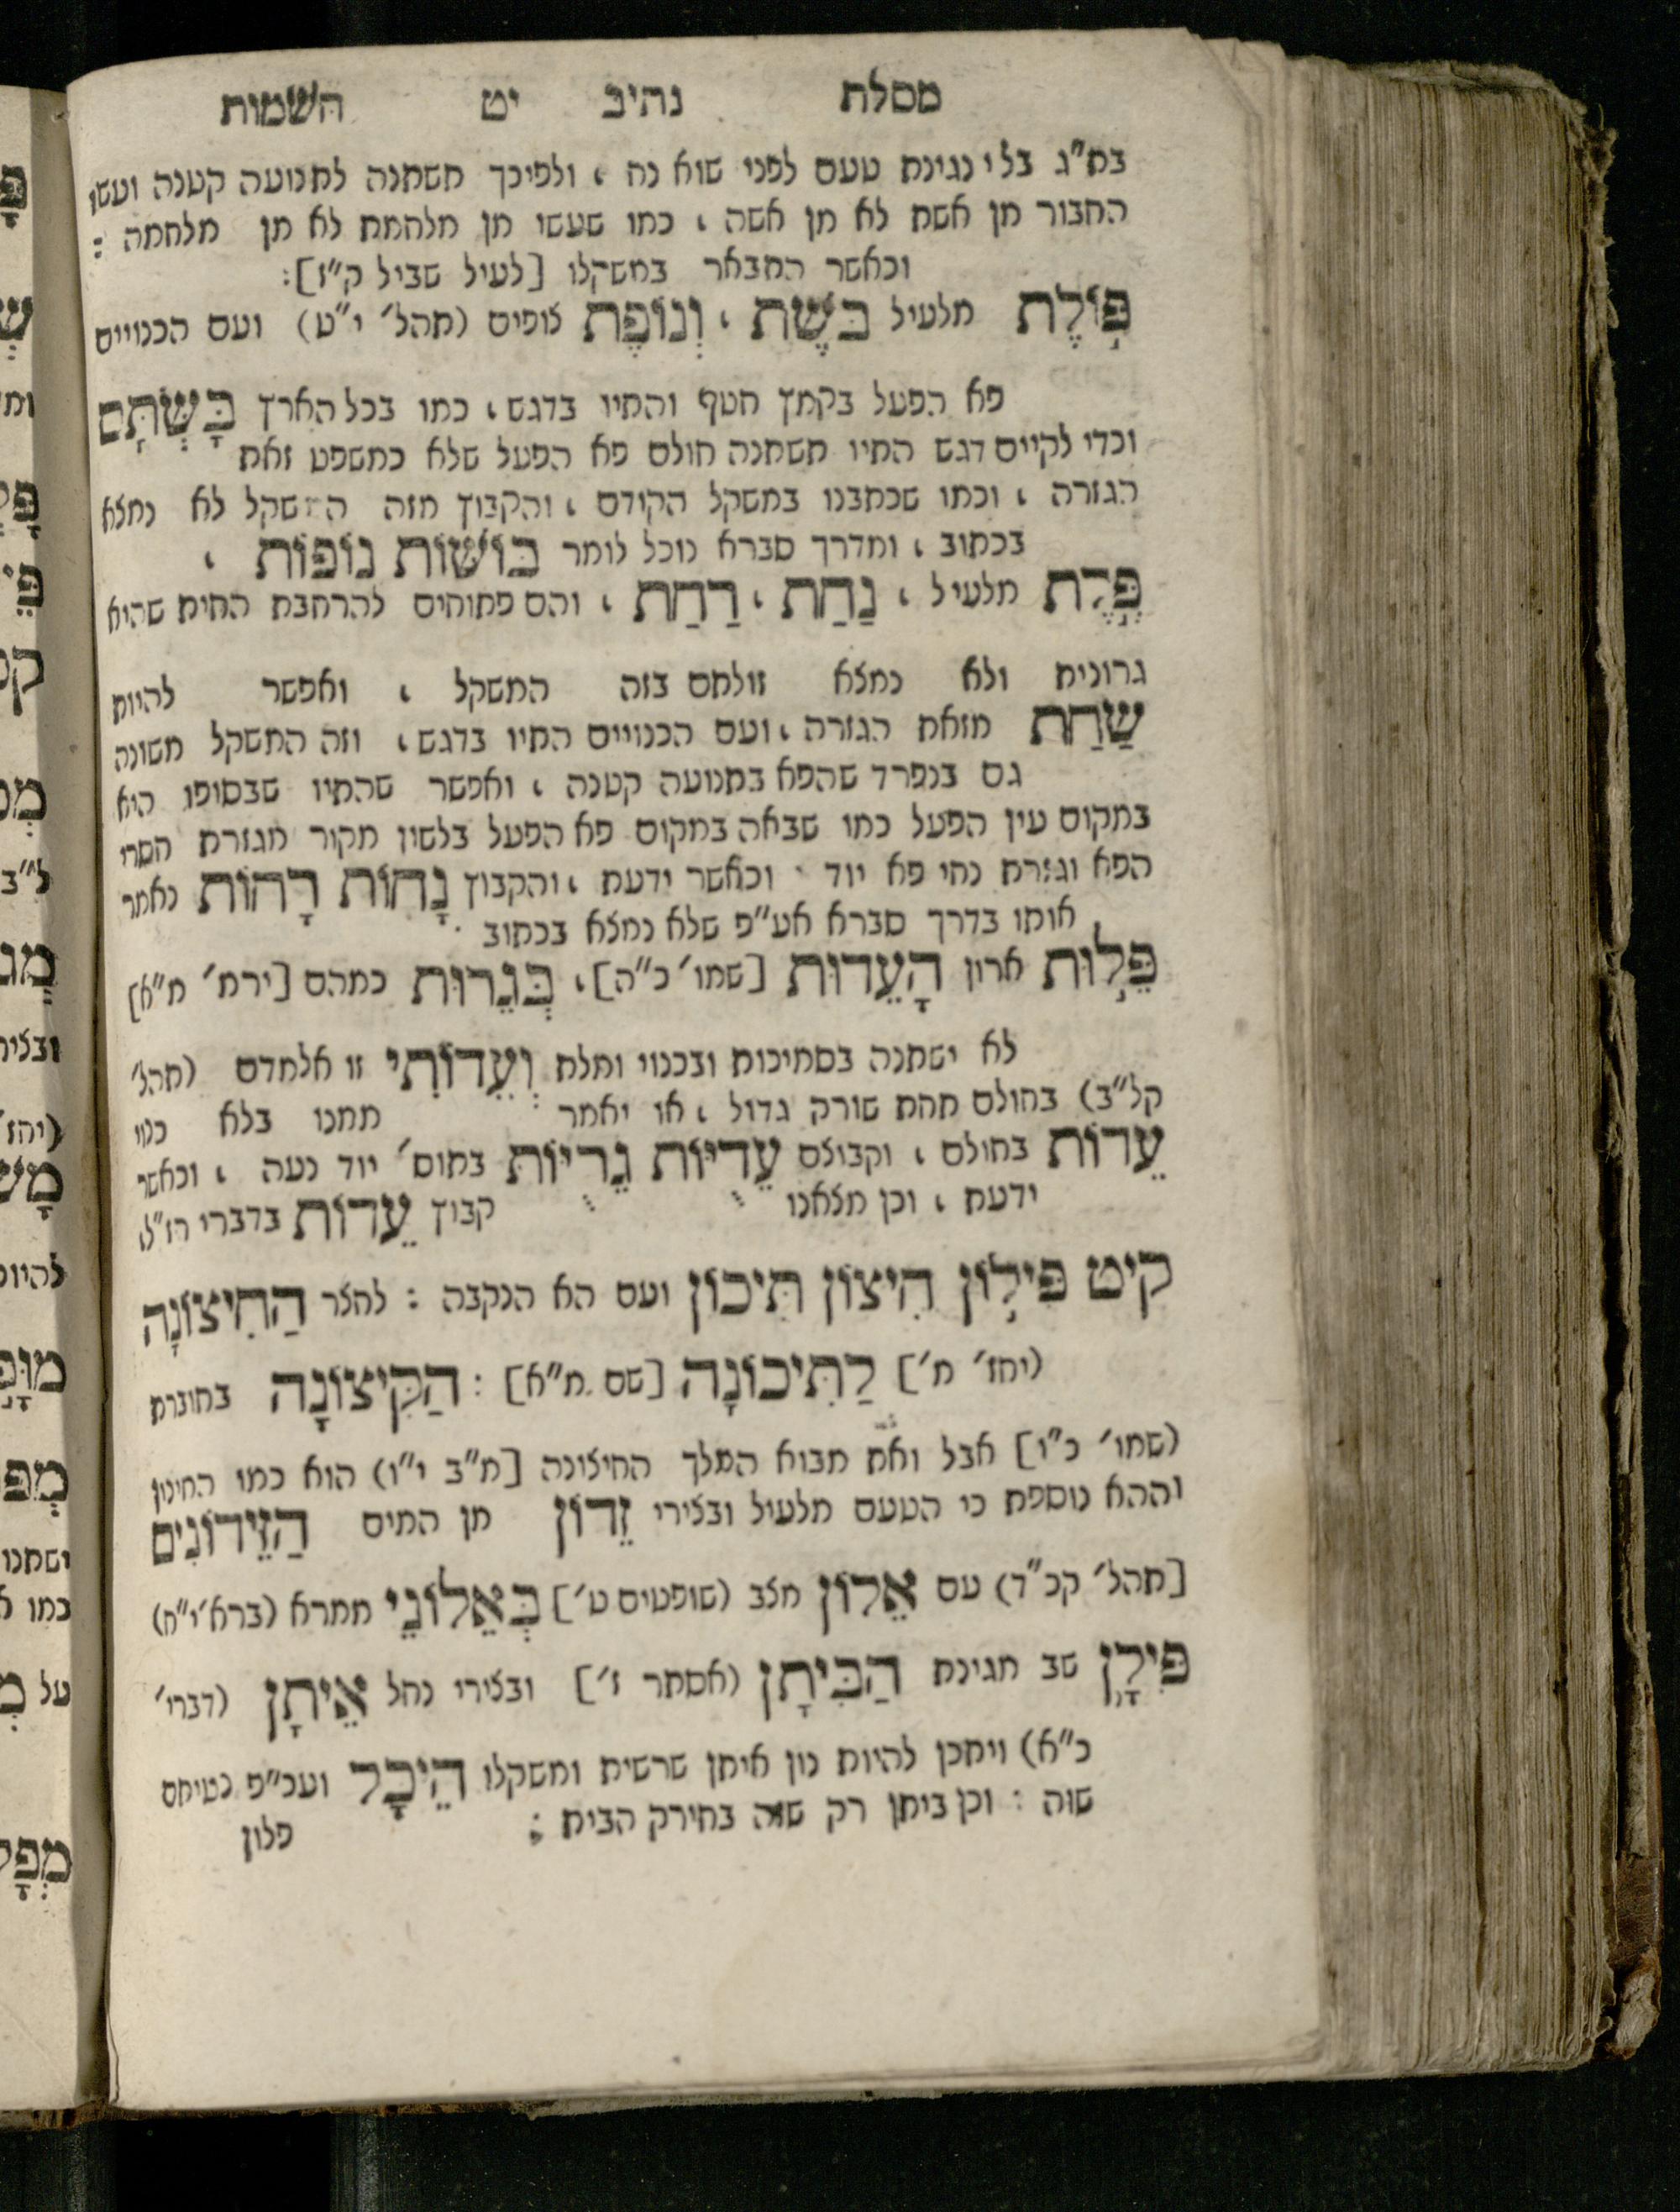 מסלת נתיב יט השמות
בת"ג בלי נגינת טעם לפני שוא נח, ולפיכך תשתנה לתנועה קטנה ועשו
החבור מן אשת לא מן אשה, כמו שעשו מן מלחמת לא מן מלחמה:
וכאשר התבאר במשקלו [לעיל שביל ק"ז]:
פּוֹלֶת מלעיל בּשֶׁת, וְנוֹפֶת צופים (תהל' י"ט) ועם הכנויים
פא הפעל בקמץ חטף והתיו בדגש, כמו בכל הארץ בָּשְׁתָּם
וכדי לקיים דגש התיו תשתנה חולם פא הפעל שלא כמשפט זאת
הגזרה, וכמו שכתבנו במשקל הקודם, והקבוץ מזה המשקל לא נמצא
בכתוב, ומדרך סברא נוכל לומר בּוֹשׁוֹת נוֹפוֹת,
פֶּלֶת מלעיל, נַחַת, רַחַת, והם פתוחים להרחבת החית שהיא
גרונית ולא נמצא זולתם בזה המשקל, ואפשר להיות
שַׁחַת מזאת הגזרה, ועם הכנויים התיו בדגש, וזה המשקל משונה
גם בנפרד שהפא בתנועה קטנה, ואפשר שהתיו שבסופו היא
במקום עין הפעל כמו שבאה במקום פא הפעל בלשון מקור מגזרת חסרי
הפא וגזרת נחי פא יוד וכאשר ידעת, והקבוץ נָחוֹת רָחוֹת נאמר
אותו בדרך סברא אע"פ שלא נמצא בכתוב
פֵּלוּת ארון הָעֵדוּת [שמו' כ"ה], בְּגֵרוּת כמהם [ירמ' מ"א]
לא ישתנה בסמיכות ובכנוי ומלת וְעֵדוֹתִי זו אלמדם (תהל'
קל"ב) בחולם תחת שורק גדול, או יאמר ממנו בלא כנוי
עֵדוֹת בחולם, וקבוצם עֵדֻיּוֹת גֵרֻיּוֹת בתוס' יוד נעה, וכאשר
ידעת, וכן מצאנו קבוץ עֵדוּת בדברי רז"ל,
קיט פּילוֹן חִיצוֹן תִּיכוֹן ועם הא הנקבה: לחצר הַחִיצוֹנָה
(יחז' מ'] לַתִּיכוֹנָה [שם מ"א]: הַקִּיצוֹנָה בחוברת
(שמו' כ"ו] אבל ואת מבוא המלך החיצונה [מ"ב י"ו) הוא כמו החיצון
וההא נוספת כי הטעם מלעיל ובצירי זֵדוֹן מן המים הַזֵּידוֹנִים
[תהל' קכ"ד) עם אֵלוֹן מצב (שופטים ט'] בְּאֵלוֹנֵי ממרא (ברא' י"ח)
פִּילָן שב מגינת הַבִּיתָן (אסתר ז'] ובצירי נחל אֵיתָן (דברי'
כ"א) ויתכן להיות נון איתן שרשית ומשקלו הֵיכָל ועכ"פ נטיתם
שוה: וכן ביתן רק שזה בחירק הבית:
פלון